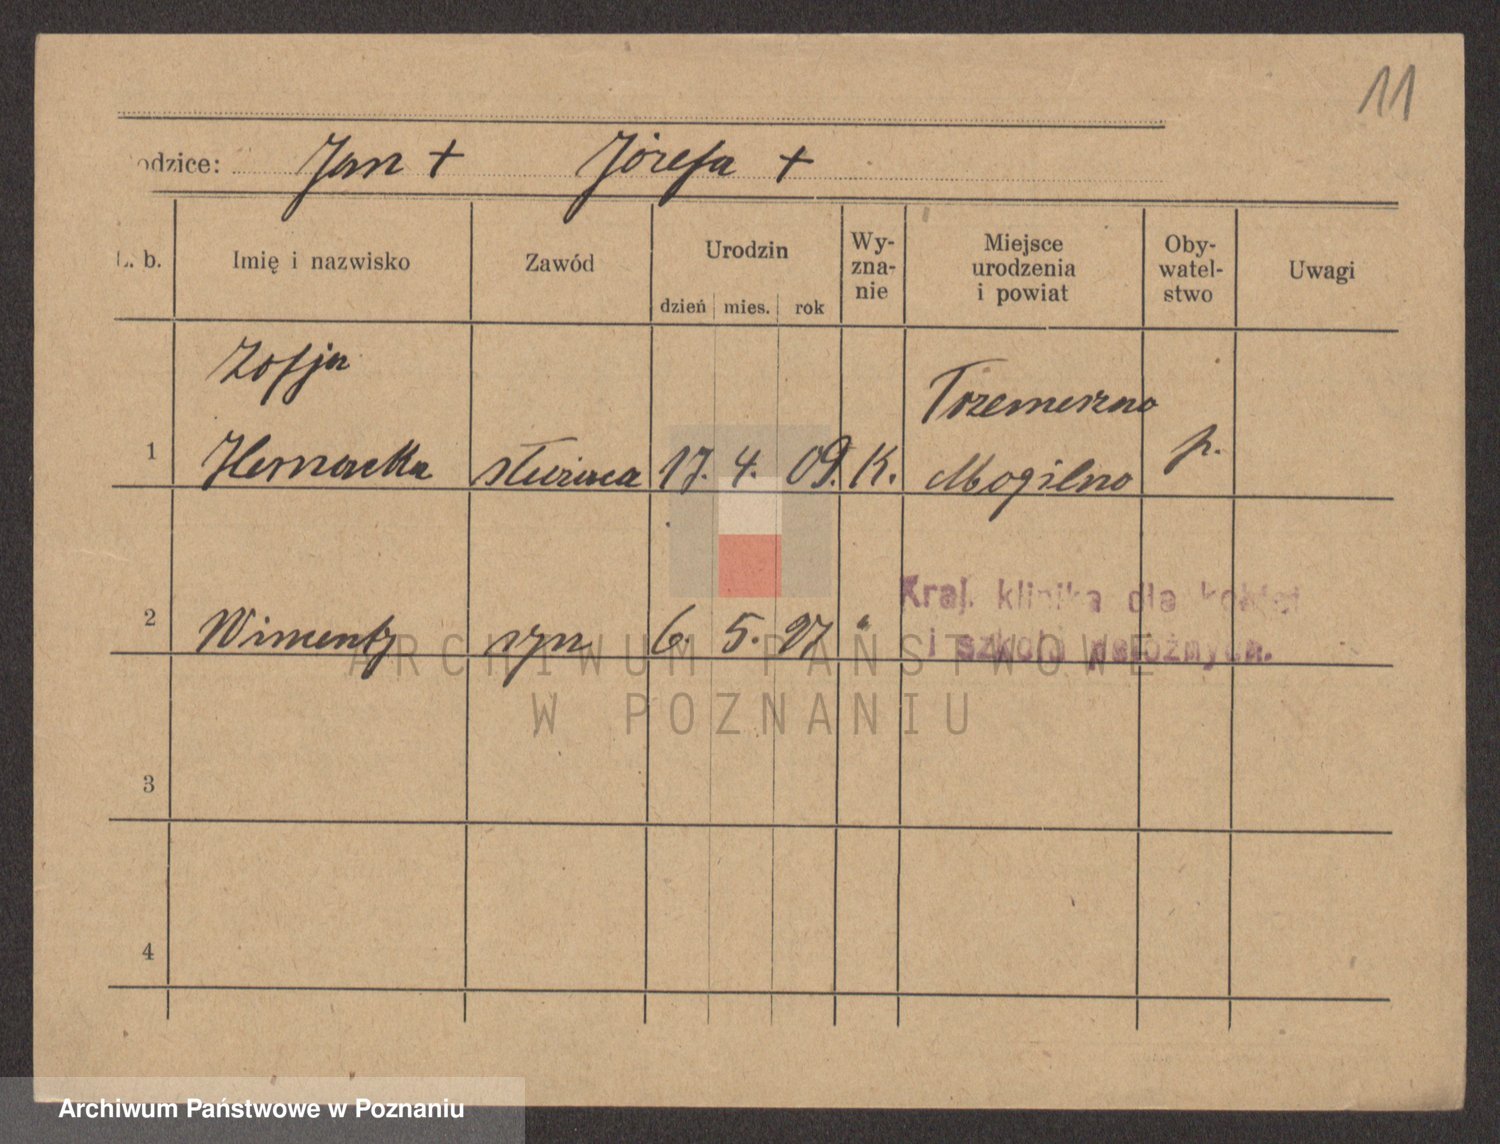 11
odzice: Jan + Józefa +
L. b. Imię i nazwisko Zawód Urodzin dzień mies. rok Wy-zna-nie Miejsce urodzenia i powiat Oby-watel-stwo Uwagi
Zofja Trzemeszno
1 służąca 17. 4. 09. K. Mogilno p.
Kraj. klinika dla kobiet
2 syn 6. 5. 27 "
i szkoła położnych.
ARCHIWUM PAŃSTWOWE
W POZNANIU
3
4
Archiwum Państwowe w Poznaniu